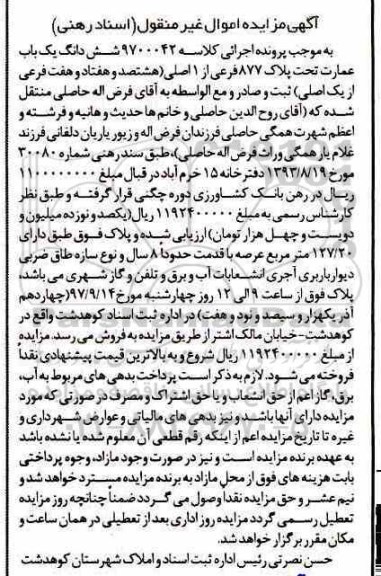 آگهی مزایده اموال غیر منقول (اسناد رهنی)
به موجب پرونده اجرائی کلاسه ۹۷۰۰۰۴۲ شش دانگ یک باب
عمارت تحت پلاک ۸۷۷ فرعی از ۱ اصلی (هشتصد و هفتاد و هفت فرعی
از یک اصلی) ثبت و صادر و مع الواسطه به آقای فرض اله حاصلی منتقل
شده که (آقای روح الدین حاصلی و خانم ها حدیث و هانیه و فرشته و
اعظم شهرت همگی حاصلی فرزندان فرض اله و زیور یاریان دلفانی فرزند
غلام یار همگی وراث فرض اله حاصلی)، طبق سند رهنی شماره ۳۰۰۸۰
مورخ ۱۳۹۳/۸/۱۹ دفترخانه ۱۵ خرم آباد در قبال مبلغ ۱۱۰۰۰۰۰۰۰۰
ریال در رهن بانک کشاورزی دوره چگنی قرار گرفته و طبق نظر
کارشناس رسمی به مبلغ ۱۱۹۲۴۰۰۰۰۰ ریال (یکصد و نوزده میلیون و
دویست و چهل هزار تومان) ارزیابی شده و پلاک فوق طبق دارای
۱۲۷/۲۰ متر مربع عرصه با قدمت حدودا ۸ سال و نوع سازه طاق ضربی
دیوار باربری آجری انشعابات آب و برق و تلفن و گاز شهری می باشد،
پلاک فوق از ساعت ۹ الی ۱۲ روز چهارشنبه مورخ ۹۷/۹/۱۴ (چهاردهم
آذر یکهزار و سیصد و نود و هفت) در اداره ثبت اسناد کوهدشت واقع در
کوهدشت-خیابان مالک اشتر از طریق مزایده به فروش می رسد. مزایده
از مبلغ ۱۱۹۲۴۰۰۰۰۰ ریال شروع و به بالاترین قیمت پیشنهادی نقداً
فروخته می شود. لازم به ذکر است پرداخت بدهی های مربوط به آب،
برق، گاز اعم از حق انشعاب و یا حق اشتراک و مصرف در صورتی که مورد
مزایده دارای آنها باشد و نیز بدهی های مالیاتی و عوارض شهرداری و
غیره تا تاریخ مزایده اعم از اینکه رقم قطعی آن معلوم شده یا نشده باشد
به عهده برنده مزایده است و نیز در صورت وجود مازاد، وجوه پرداختی
بابت هزینه های فوق از محل مازاد به برنده مزایده مسترد خواهد شد و
نیم عشر و حق مزایده نقدا وصول می گردد ضمناً چنانچه روز مزایده
تعطیل رسمی گردد مزایده روز اداری بعد از تعطیلی در همان ساعت و
مکان مقرر برگزار خواهد شد.
حسن نصرتی رئیس اداره ثبت اسناد و املاک شهرستان کوهدشت